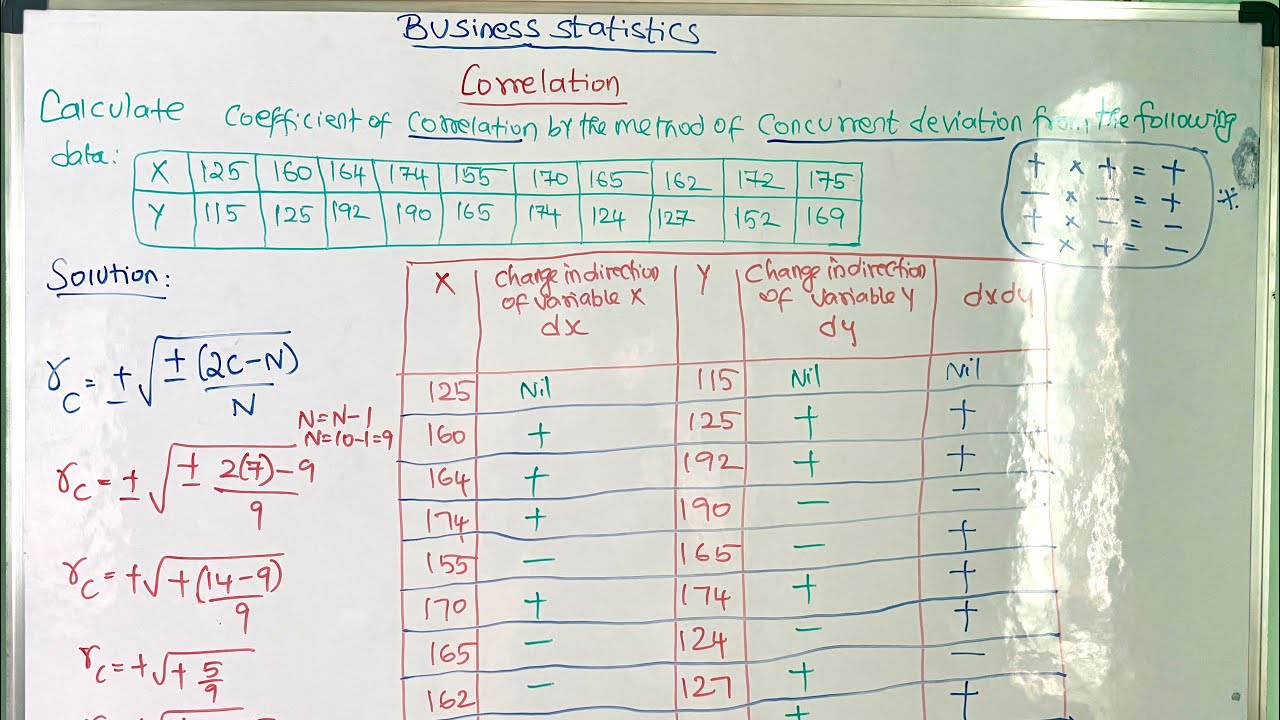 Business statistics
Correlation
Calculate coefficient of correlation by the method of concurrent deviation from the following
data:
X 125 160 164 174 155 170 165 162 172 175
Y 115 125 192 190 165 174 124 127 152 169
+ × + = +
- × - = +
+ × - = -
- × + = -
Solution:
r_c = ± √± (2C-N)/N
N=N-1
N=10-1=9
r_c = ± √± 2(7)-9/9
r_c = +√+(14-9)/9
r_c = +√+ 5/9
X change in direction of variable X dx Y change in direction of variable Y dy dxdy
125 Nil 115 Nil Nil
160 + 125 + +
164 + 192 + +
174 + 190 - -
155 - 165 - +
170 + 174 + +
165 - 124 - +
162 - 127 + -
+ +